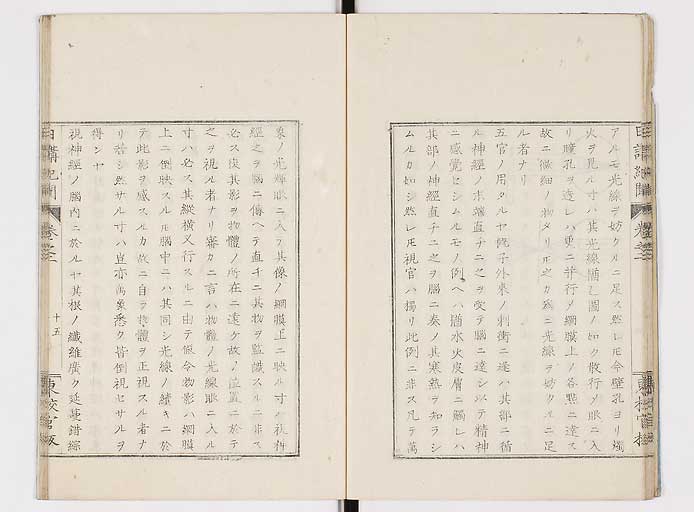 アルモ光線ヲ妨クルニ足ス然レ𪜈今壁孔ヨリ燭
火ヲ見ル寸ハ其光線随乙圖ノ如ク散行ノ眼ニ入
リ瞳孔ヲ透レハ更ニ并行ノ網膜上ノ各點ニ達ス
故ニ微細ノ物タリ𪜈之カ為ニ光線ヲ妨クルニ足
ル者ナリ
五官ノ用タルヤ既子外来ノ刺衝ニ逢ハ其部ニ循
ル神経ノ末端直チニ之ヲ受テ腦ニ達シ以テ精神
ニ感覚セシムルモノ例ヘハ猶水火皮膚ニ觸レハ
其部ノ神經直チニ之ヲ腦ニ奏ノ其寒熱ヲ知ラシ
ムルカ如シ然レ𪜈視官ハ獨リ此例ニ非ス凡テ萬
象ノ光輝眼ニ入テ其像ノ網膜上ニ映ル寸ハ視神
經之ヲ腦ニ傳ヘテ直チニ其物ヲ監識スルニ非ス
必ス侯其影ヲ物體ノ所在ニ還ケ故ノ位置ニ於テ
之ヲ視ル者ナリ審カニ言ハ物體ノ光線眼ニ入ル
寸ハ必ス其縦横又行スルニ由テ假令物影ハ網膜
上ニ倒映スル𪜈腦中ニハ其同シ光線ノ續キニ於
テ此影ヲ感スルカ故ニ自ラ物體ヲ正視スル者ナ
リ若シ然サル寸ハ豈亦萬象悉ク皆倒視セサルヲ
得ンヤ
視神經ノ腦内ニ於ルヤ其根ノ纎維廣ク延蔓錯綜
日講紀聞 卷之二
十五
東校官版